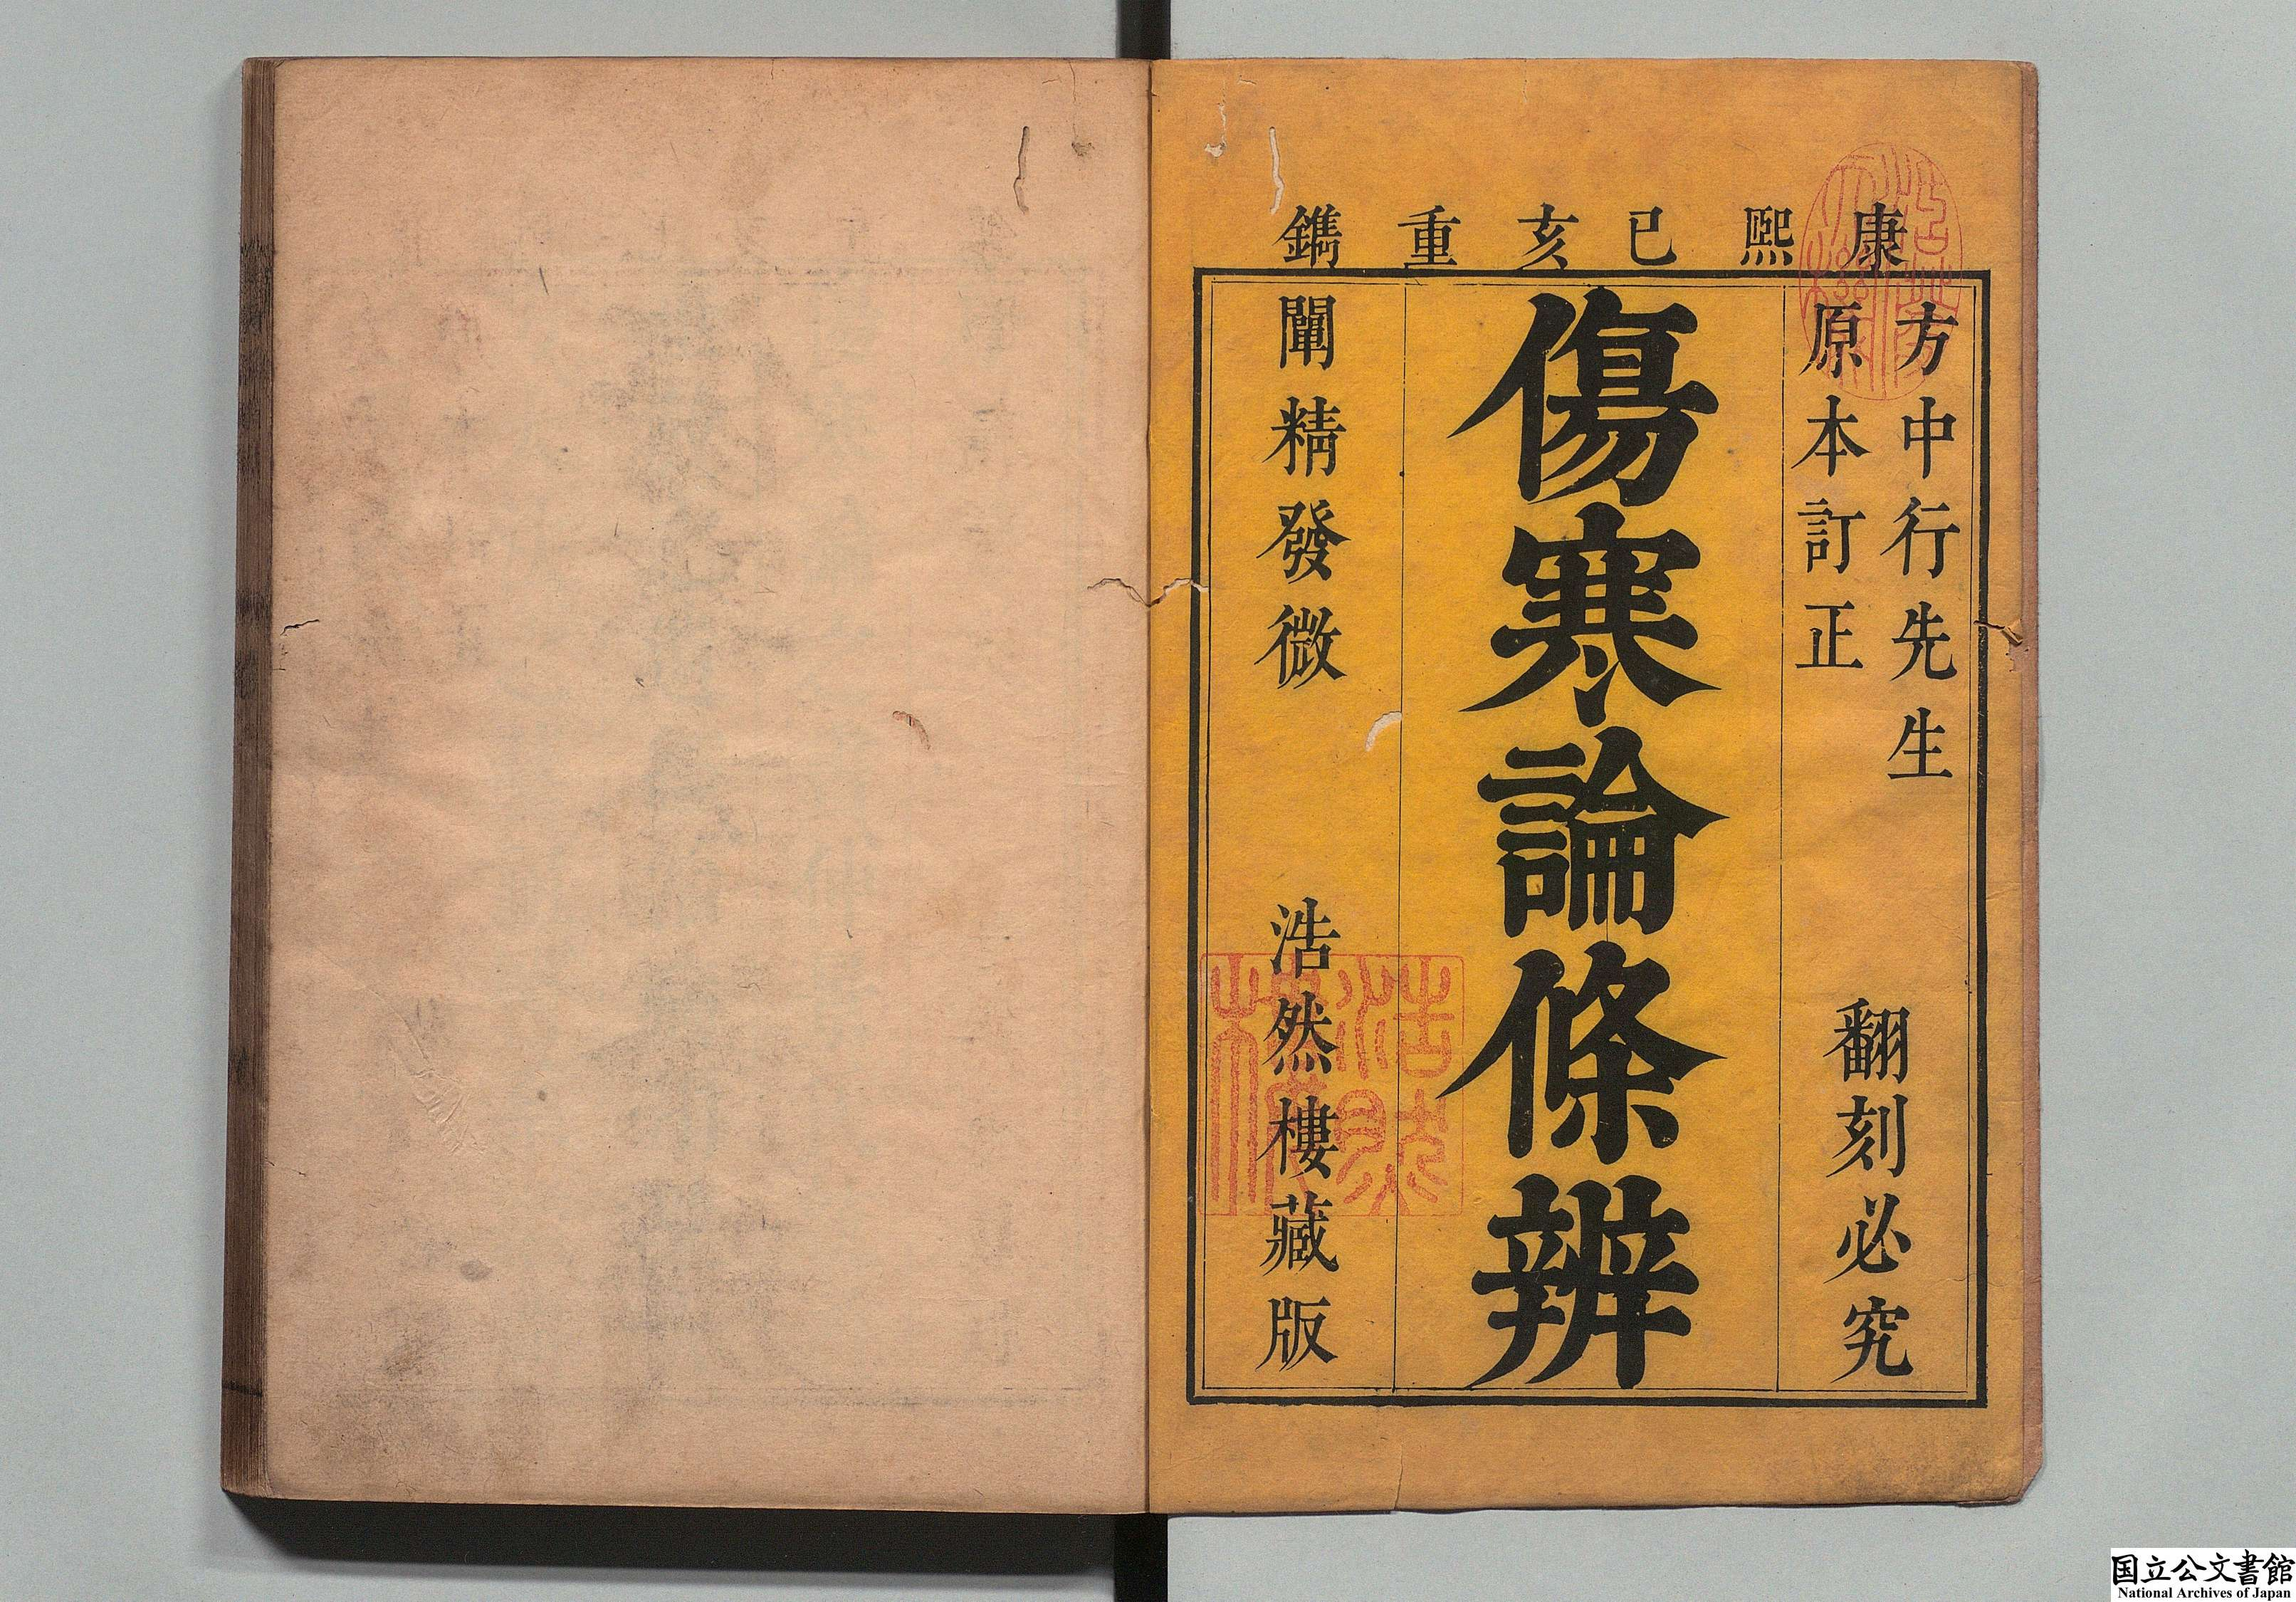 康熙己亥重鐫
方中行先生
原本訂正
翻刻必究
傷寒論條辨
闡精發微
浩然樓藏版
浩然樓
国立公文書館
National Archives of Japan